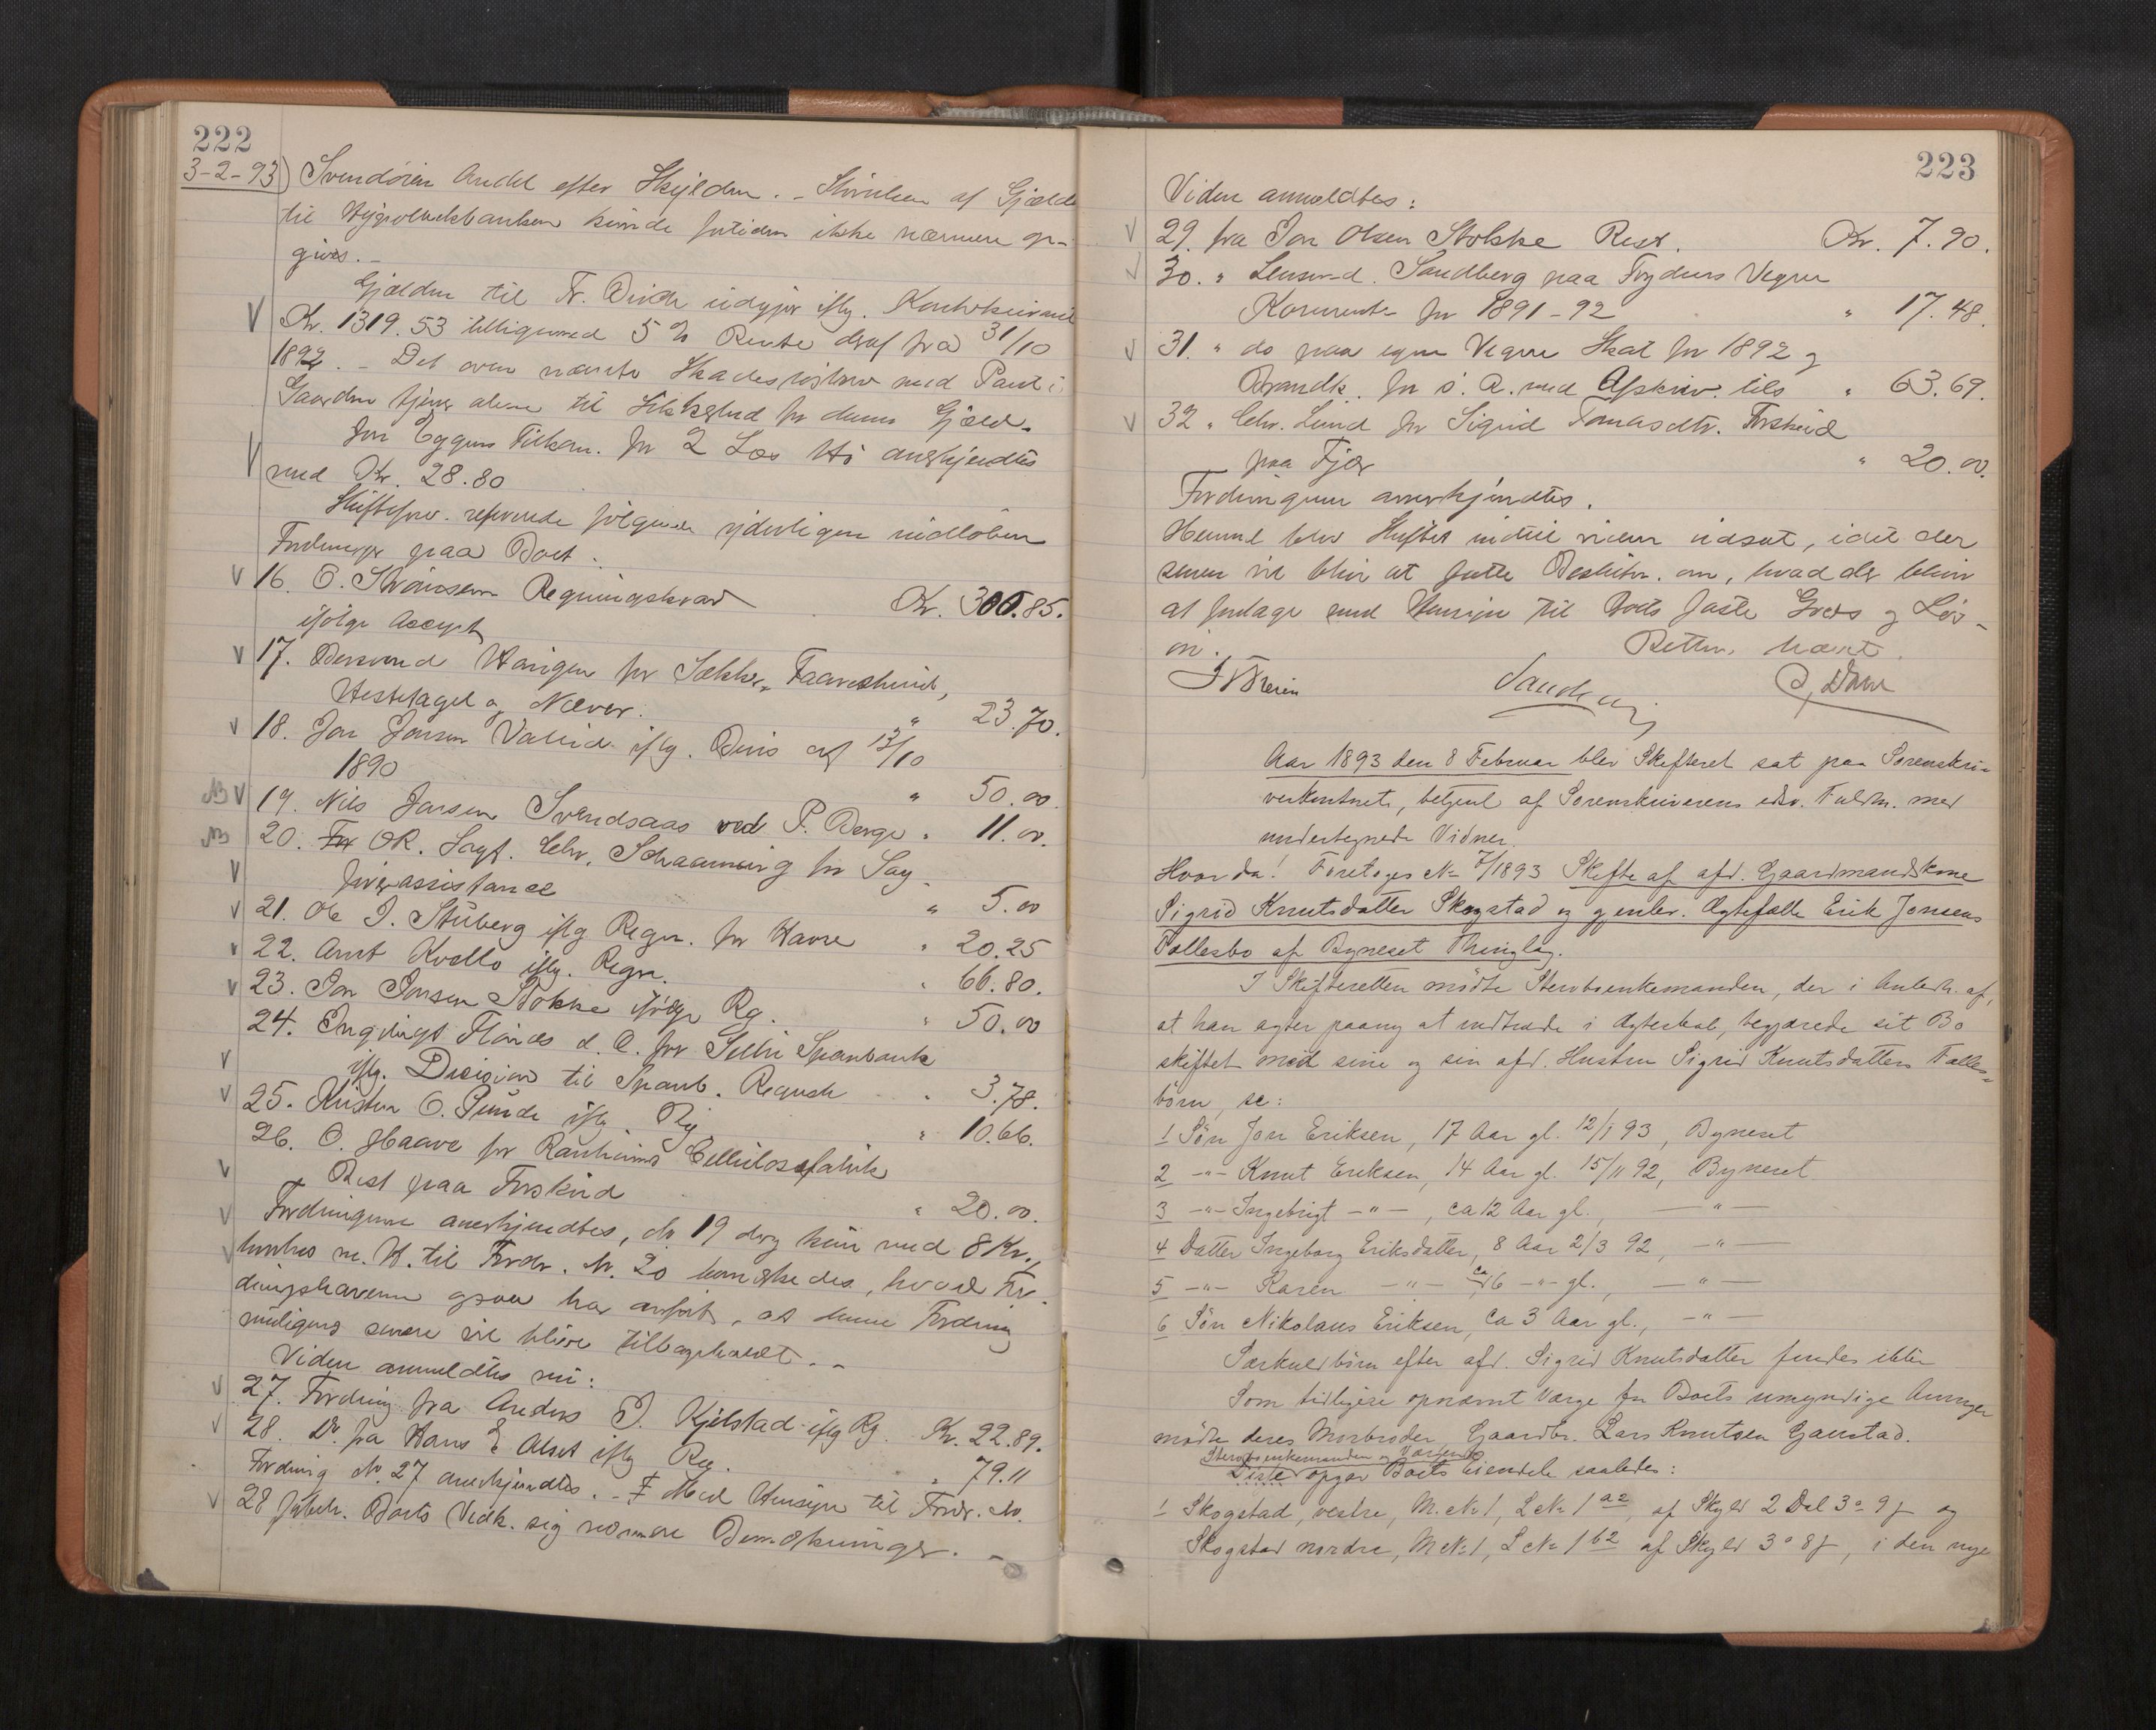 222
3-2-93) Svendören Andel efter Skylden. - Störrelsen af Gjælden
til Hypothekbanken kunde fortiden ikke nærmere op-
gives. -
Gjælden til Fr. Birch udgjör iflg. Kontokurant
Kr. 1319.53 tilligemed 5 % Rente deraf fra 31/10
1892. - Det oven nævnte Skadeslösbrev med Pant i
Gaarden tjener alene til Sikkerhed for denne Gjæld.
Jon Eggens Tilkom. for 2 Læs Hö anerkjendtes
med Kr. 28.80
Skifteforv. refererede fölgende yderligere indlöbne
Fordringer paa Boet.
16. O. Regningskrav
ifölge Accept Kr. 300.85.
17. Hangen for Sækker, Faareskind,
Hestetagel og Næver. " 23.70.
18. Jon Jonsen iflg. Bevis af 13/10
1890 " 50.00.
NB 19. Nils Jansen Svendsaas ved P. Berge " 11.00.
NB 20. OR. Sagf. Chr. Schaanning for Sag-
förerassistance " 5.00
21. Ole J. Stuberg iflg Regn. for Havre " 20.25
22. Arnt Kvello iflg. Regn. " 66.80.
23. Jon Jonsen Stokke ifölge Rg. " 50.00
24. Ingebrigt d. O. for Selbu Sparebank
iflg. Decision til Spareb. Regnsk " 3.78.
25. Kristen O. Sunde iflg. Rg " 10.66.
26. O. Haave for Ranheims Cellulosefabrik
Rest paa Forskud " 20.00.
Fordringerne anerkjendtes, No 19 dog kun med 8 Kr.,
hvorhos m. H. til Fordr. No. 20 bemærkedes, hvad For-
dringshaveren ogsaa har anfört, at denne Fordring
muligens senere vil blive tilbagekaldt. -
Viden anmeldtes nu:
27. Fordring fra Anders J. Kjelstad iflg Rg. Kr. 22.89.
28. Do fra Hans E Alset iflg Reg. " 79.11
Fordring No 27 anerkjendtes. - Med Hensyn til Fordr. No.
28 forbeh. Boets Vedk. sig nærmere Bemærkninger. -
223
Viden anmeldtes:
29. fra Jon Olsen Stokke Rest. Kr. 7.90.
30. " Lensmd. Sandberg paa Fogdens Vegne
Kornrente for 1891-92 " 17.48.
31. " do paa egne Vegne Skat for 1892 og
Brandk. for s. A. med Afskriv. tils " 63.69.
32 " Chr. Lund for Sigrid Tomasdtr. Forskud
paa Fjær " 20.00.
Fordringerne anerkjendtes.
Hermed blev Skiftet indtil videre udsat, idet der
senere vil blive at fatte Beslutn. om, hvad der bliver
at foretage med Hensyn til Boets faste Gods og Lös-
öre. Retten hævet.
Aar 1893 den 8 Februar blev Skifteret sat paa Sorenskri-
verkontoret, betjent af Sorenskriverens edsv. Fuldm. med
undertegnede Vidner.
Hvorda! Foretoges No 7/1893 Skifte af afd. Gaardmandskone
Sigrid Knutsdatter Skogstad og gjenlev. Ægtefælle Erik Jonsens
Fællesbo af Bynesset Thinglag.
I Skifteretten mödte Stervboenkemanden, der i Anledn. af,
at han agter paany at indtræde i Ægteskab, begjærede sit Bo
skiftet med sine og sin afd. Hustru Sigrid Knutsdatters Fælles-
börn, se:
1 Sön Jon Eriksen, 17 Aar gl. 12/1 93, Byneset
2 -"- Knut Eriksen, 14 Aar gl. 15/11 92, Byneset
3 -"- Ingebrigt -"-, ca 12 Aar gl., -"-
4 Datter Ingeborg Eriksdatter, 8 Aar 2/3 92, -"-
5 -"- Karen -"- ca 6 -"- gl., -"-
6 Sön Nikolaus Eriksen, ca 3 Aar gl., -"-
Særkuldbörn efter afd. Sigrid Knutsdatter findes ikke
Som tidligere opnævnt Værge for Boets umyndige Arvinger
mödte deres Morbroder Gaardbr. Lars Knutsen Gaustad.
Stervboenkemanden og Værgen
Disse opgav Boets Eiendele saaledes:
1 Skogstad, vestre, M. No 1, L No 1 a2, af Skyld 2 Dal 3 o 9 s og
Skogstad nordre, M No 1, L No 1 b2 af Skyld 3 o 8 s, i den nye